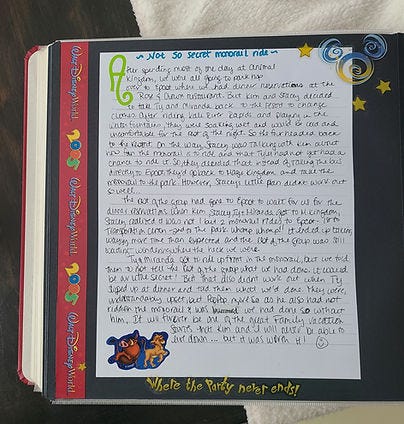 ~ Not So Secret monorail ride ~
After spending most of the day at Animal
Kingdom, we were all going to park hop
over to Epcot where we had dinner reservations at the
Rose & Crown restaurant. But Kim and Stacey decided
to take Ty and Miranda back to the resort to change
clothes. After riding Kali River Rapids and playing in the
water fountains, they were soaking wet and would be cold and
uncomfortable for the rest of the night. So the four headed back
to the resort. On the way, Stacey was talking with Kim about
how fun the monorail is to ride and that Tyler had not got had a
chance to ride it. So they decided that instead of taking the bus
directly to Epcot they'd go back to Magic Kingdom and take the
monorail to the park. However, Stacey's little plan didn't work out
so well...
The rest of the group had gone to Epcot to wait for us for the
dinner reservations. When Kim, Stacey, Ty & Miranda got to M. Kingdom,
Stacey realized it was not 1 but 2 monorail rides to Epcot - 1st to
Transportation Center and to the park whomp whomp! It ended up taking
waaayy more time than expected and the rest of the group was still
waiting wondering where the heck we were.
Ty & Miranda got to ride up front in the monorail, but we told
them to not tell the rest of the group what we had done. It would
be our little secret! But that also didn't work out when Ty
slipped up at dinner and told them what we'd done. They were
understandably upset, but PopPop more so as he also had not
ridden the monorail & was bummed we had done so without
him. It will forever be one of the great Family Vacation
Stories that Kim and I will never be able to
live down... but it was worth it!
Where the Party never ends!
Walt Disney World
2005
Walt Disney World.
2005
Walt Disney World.